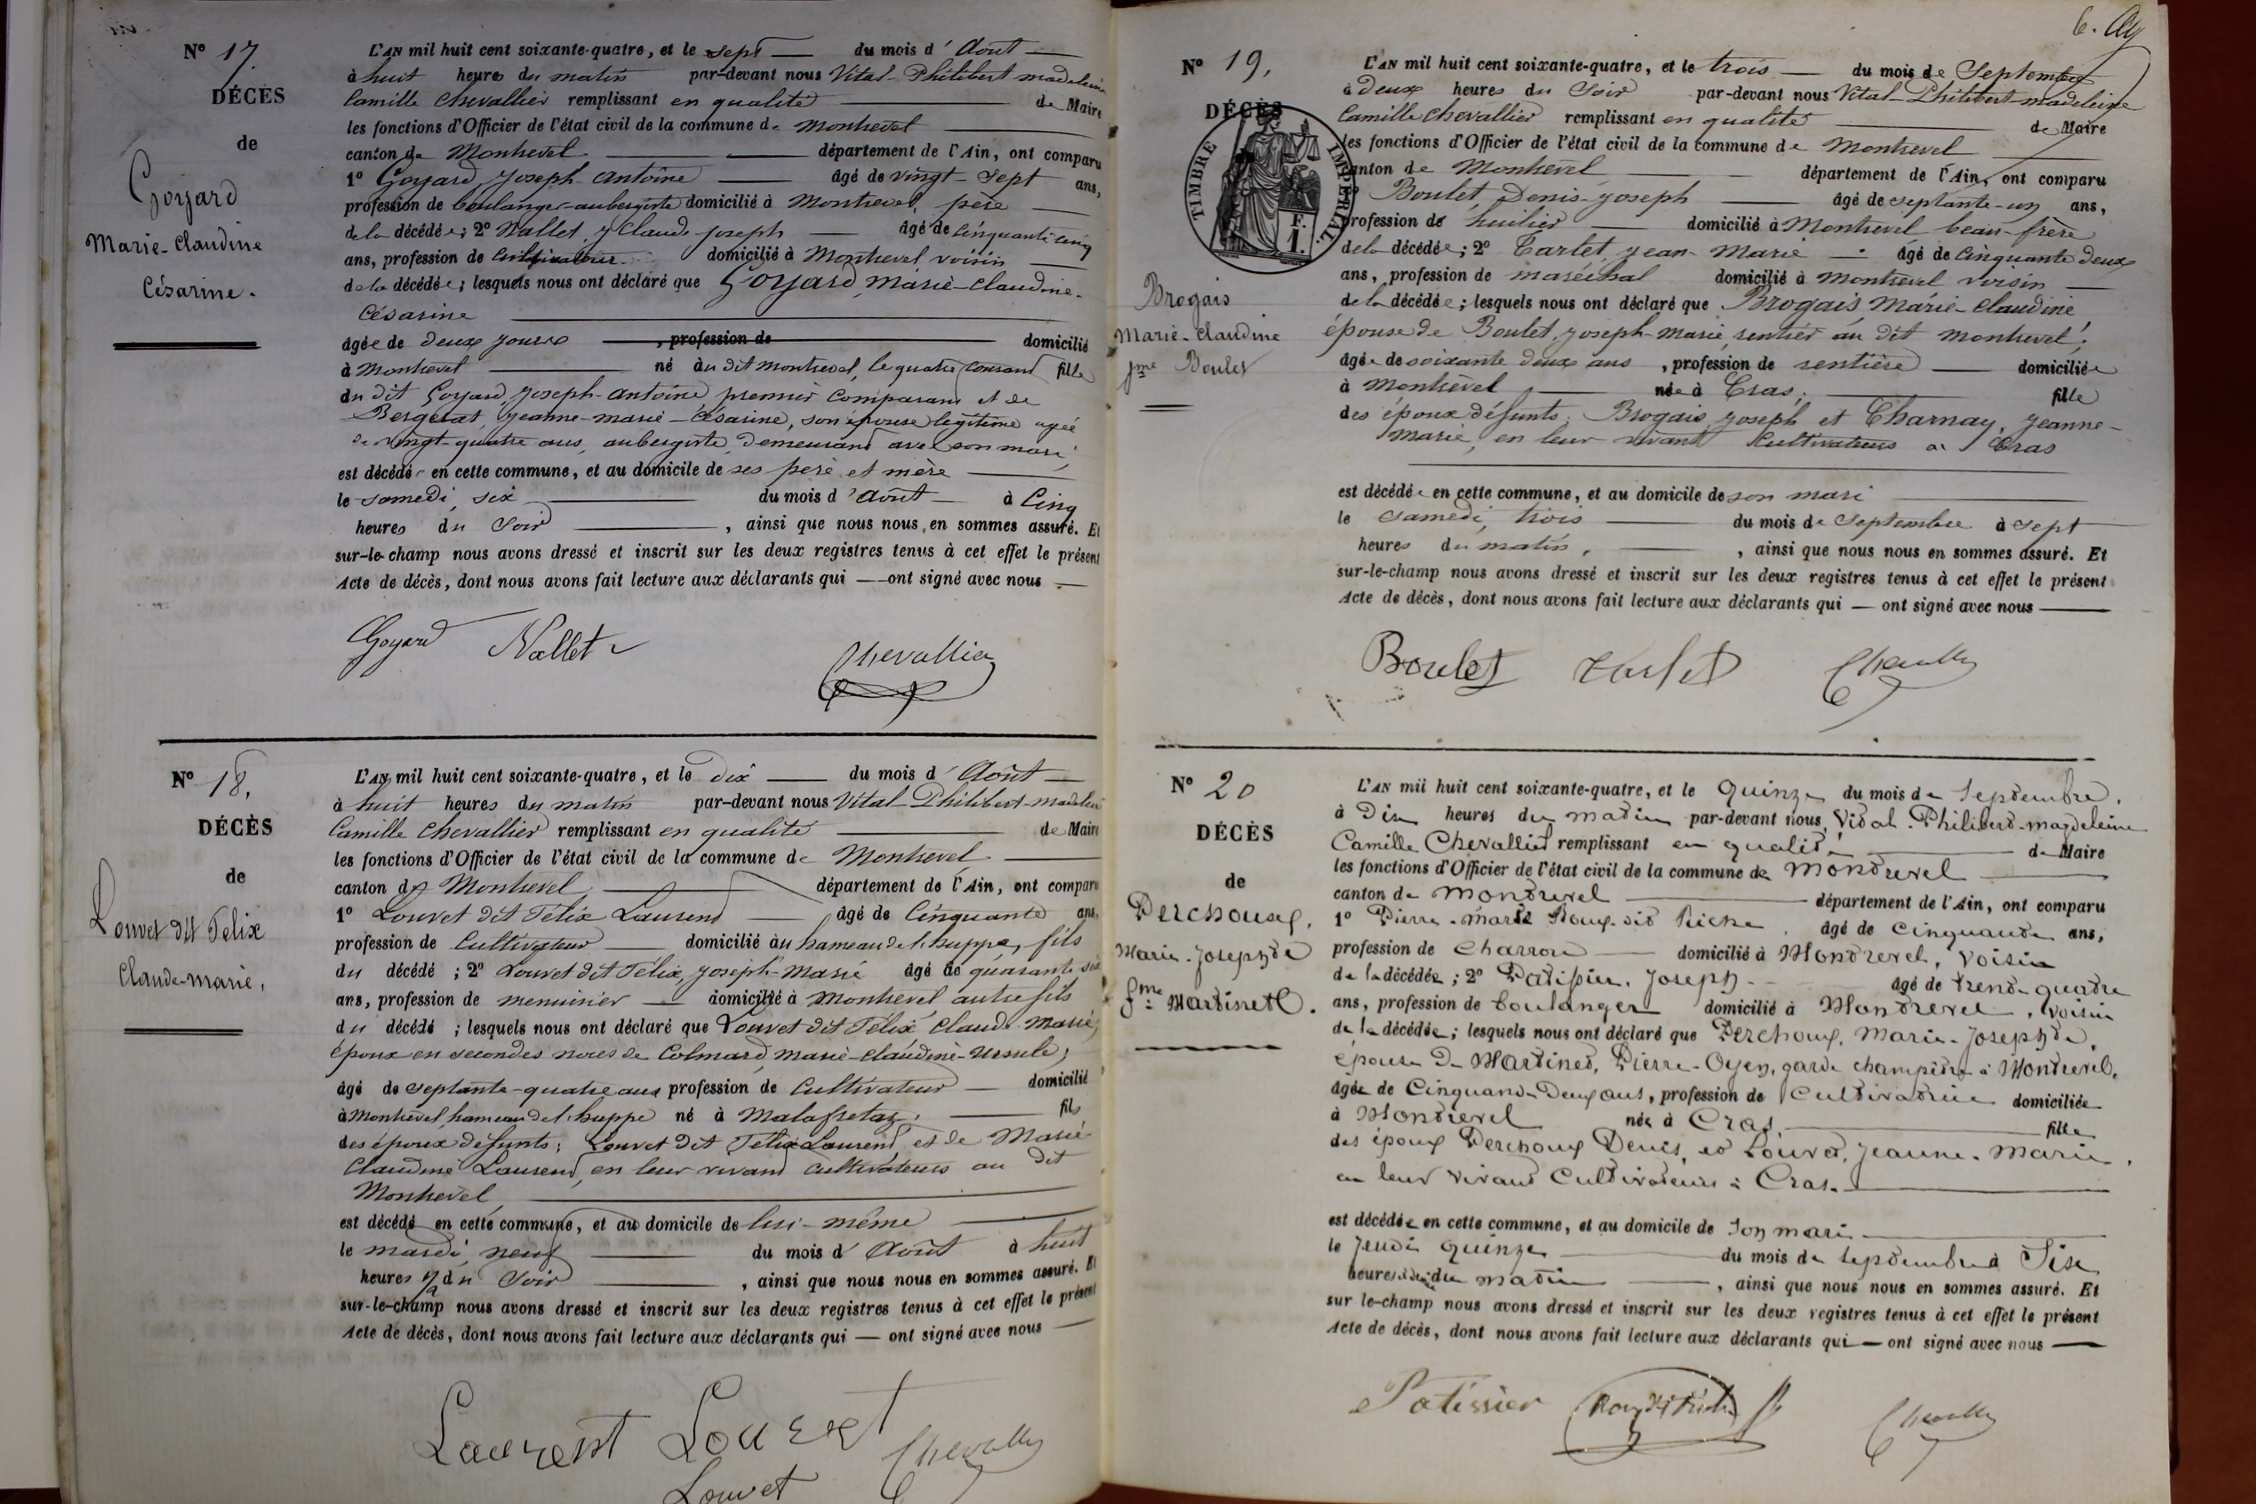 N° 17.
DÉCÈS
de
Goyard
Marie-Claudine
Césarine.
L'AN mil huit cent soixante-quatre, et le sept du mois d'Août
à huit heures du matin par-devant nous Vital-Philibert madeleine
Camille Chevallier remplissant en qualité de Maire
les fonctions d'Officier de l'état civil de la commune de Montrevel
canton de Montrevel département de l'Ain, ont comparu
1° Goyard, Joseph-Antoine âgé de vingt-sept ans,
profession de boulanger-aubergiste domicilié à Montrevel, père
de la décédée; 2° Nallet, Claude-Joseph âgé de Cinquante cinq
ans, profession de Cultivateur domicilié à Montrevel voisin
de la décédée; lesquels nous ont déclaré que Goyard, Marie-Claudine-
Césarine
âgée de deux jours, profession de domicilié
à Montrevel né au dit Montrevel, le quatre courant fille
du dit Goyard, Joseph-Antoine premier comparant et de
Bergerat, Jeanne-Marie-Césarine, son épouse légitime agée
de vingt-quatre ans, aubergiste, demeurant avec son mari,
est décédé en cette commune, et au domicile de ses père et mère
le samedi, six du mois d'Août à Cinq
heures du Soir, ainsi que nous nous en sommes assuré. Et
sur-le-champ nous avons dressé et inscrit sur les deux registres tenus à cet effet le présent
Acte de décès, dont nous avons fait lecture aux déclarants qui — ont signé avec nous
Goyard Nallet Chevallier
N° 18.
DÉCÈS
de
Louvet dit Félix
Claude-Marie,
L'AN mil huit cent soixante-quatre, et le dix du mois d'Août
à huit heures du matin par-devant nous Vital-Philibert-madelei
Camille Chevallier remplissant en qualité de Maire
les fonctions d'Officier de l'état civil de la commune de Montrevel
canton de Montrevel département de l'Ain, ont comparu
1° Louvet dit Félix Laurent âgé de Cinquante ans,
profession de Cultivateur domicilié au hameau de huppe, fils
du décédé; 2° Louvet dit Félix, Joseph-Marie âgé de quarante six
ans, profession de menuisier domicilié à Montrevel autre fils
du décédé; lesquels nous ont déclaré que Louvet dit Félix Claude-Marie,
époux en secondes noces de Colmard, Marie-Claudine-Ursule,
âgé de septante-quatre ans profession de Cultivateur domicilié
à Montrevel, hameau de huppe né à Malafretaz, fils
des époux défunts: Louvet dit Félix Laurent, et de Marie
Claudine Laurent, en leur vivant cultivateurs au dit
Montrevel
est décédé en cette commune, et au domicile de lui-même
le mardi neuf du mois d'Août à huit
heures du Soir, ainsi que nous nous en sommes assuré. Et
sur-le-champ nous avons dressé et inscrit sur les deux registres tenus à cet effet le présent
Acte de décès, dont nous avons fait lecture aux déclarants qui — ont signé avec nous
Laurent Louvet Chevallier
Louvet
N° 19.
DÉCÈS
TIMBRE IMPÉRIAL.
F.
1.
Brogais
Marie-Claudine
fme Boulet
L'AN mil huit cent soixante-quatre, et le trois du mois de Septembre
à deux heures du Soir par-devant nous Vital-Philibert-madeleine
Camille Chevallier remplissant en qualité de Maire
les fonctions d'Officier de l'état civil de la commune de Montrevel
canton de Montrevel département de l'Ain, ont comparu
Boulet, Denis-Joseph âgé de septante-un ans,
profession de huilier domicilié à Montrevel beau-frère
de la décédée; 2° Tarlet, Jean-Marie âgé de Cinquante deux
ans, profession de maréchal domicilié à Montrevel voisin
de la décédée; lesquels nous ont déclaré que Brogais Marie-Claudine
épouse de Boulet, Joseph-Marie, rentier au dit Montrevel,
âgée de soixante deux ans, profession de rentière domiciliée
à Montrevel née à Cras, fille
des époux défunts: Brogais Joseph et Charnay, Jeanne-
Marie, en leur vivant Cultivateurs à Cras
est décédée en cette commune, et au domicile de son mari
le samedi, trois du mois de Septembre à sept
heures du matin, ainsi que nous nous en sommes assuré. Et
sur-le-champ nous avons dressé et inscrit sur les deux registres tenus à cet effet le présent
Acte de décès, dont nous avons fait lecture aux déclarants qui — ont signé avec nous
Boulet Tarlet Chevallier
N° 20
DÉCÈS
de
Perchoux,
Marie-Josephte
fme Martinet.
L'AN mil huit cent soixante-quatre, et le quinze du mois de Septembre,
à Dix heures du matin par-devant nous, Vital-Philibert-magdeleine
Camille Chevallier remplissant en qualité de Maire
les fonctions d'Officier de l'état civil de la commune de Montrevel
canton de Montrevel département de l'Ain, ont comparu
1° Pierre-Marie Roux-dit Riche âgé de Cinquante ans,
profession de Charron domicilié à Montrevel, voisin
de la décédée; 2° Patissier, Joseph âgé de trente-quatre
ans, profession de boulanger domicilié à Montrevel, voisin
de la décédée; lesquels nous ont déclaré que Perchoux, Marie-Josephte,
épouse de Martinet, Pierre-Oyen, garde champêtre à Montrevel,
âgée de Cinquante-Deux ans, profession de Cultivatrice domiciliée
à Montrevel née à Cras, fille
des époux Perchoux Denis, et Louvet, Jeanne-Marie,
en leur vivant Cultivateurs à Cras.
est décédée en cette commune, et au domicile de son mari
le Jeudi quinze du mois de Septembre à Six
heures du matin, ainsi que nous nous en sommes assuré. Et
sur le-champ nous avons dressé et inscrit sur les deux registres tenus à cet effet le présent
Acte de décès, dont nous avons fait lecture aux déclarants qui — ont signé avec nous
Patissier Roux dit Riche Chevallier